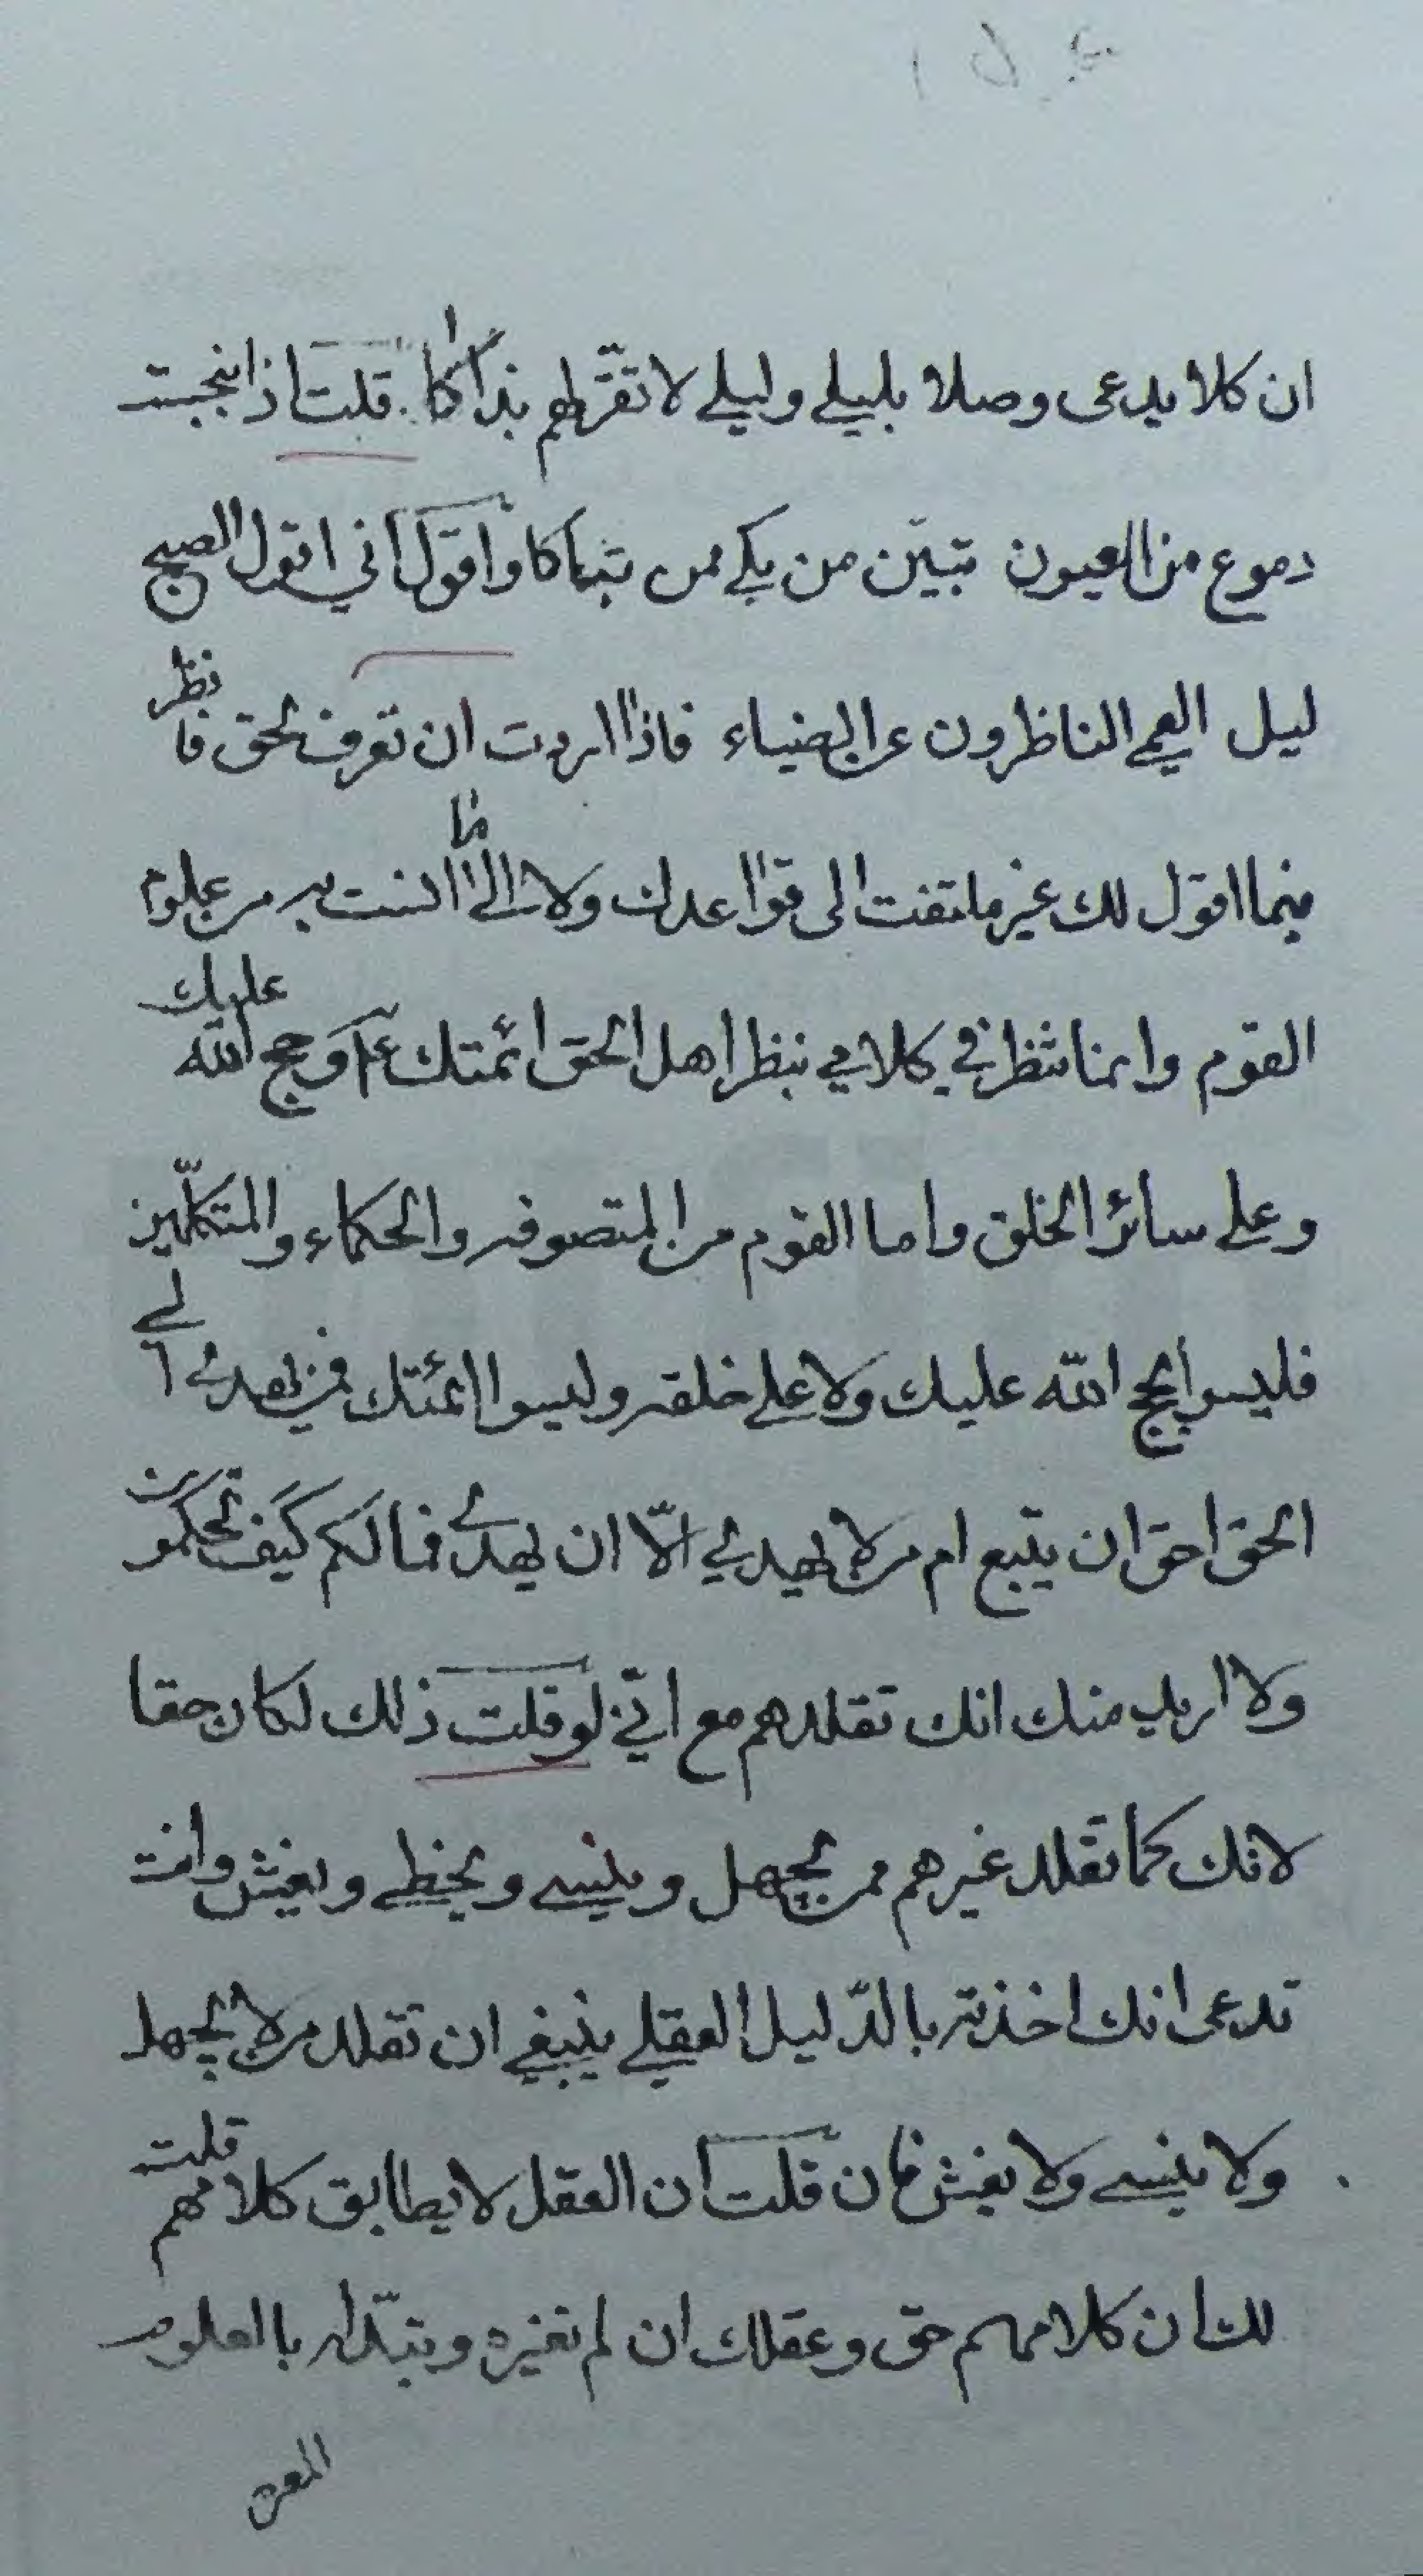 ان كلا يدعى وصلا بليلي وليلي لا تقرّ لهم بذاكا قلت اذا انبجست
دموع من العيون تبيّن من بكي ممن تباكا واقول اني اقول الصبح
ليل ايعمي الناظرون عن الضياء فاذا اردت ان تعرف الحق فانظر
فيما اقول لك غير ملتفت الى قواعدك ولا الى ما انست به من علوم
القوم وانما تنظر في كلامي بنظر اهل الحق ائمتك ع م وحجج الله عليك
وعلي سائر الخلق واما القوم من المتصوفه والحكماء والمتكلّمين
فليسوا بحجج الله عليك ولا علي خلقه وليسوا ائمتك فمن يهدي الي
الحق احق ان يتبع ام من لا يهدي الّا ان يهدي فما لكم كيف تحكمون
ولا اريد منك انك تقلدهم مع انّي لو قلت ذلك لكان حقا
لانك كما تقلد غيرهم ممن يجهل وينسي ويخطي ويغش وانت
تدعى انك اخذته بالدّليل العقلي ينبغي ان تقلد من لا يجهل
ولا ينسي ولا يغش فان قلت ان العقل لا يطابق كلامهم قلت
لك ان كلامهم حق وعقلك ان لم تغيره وتبدّله بالعلوم